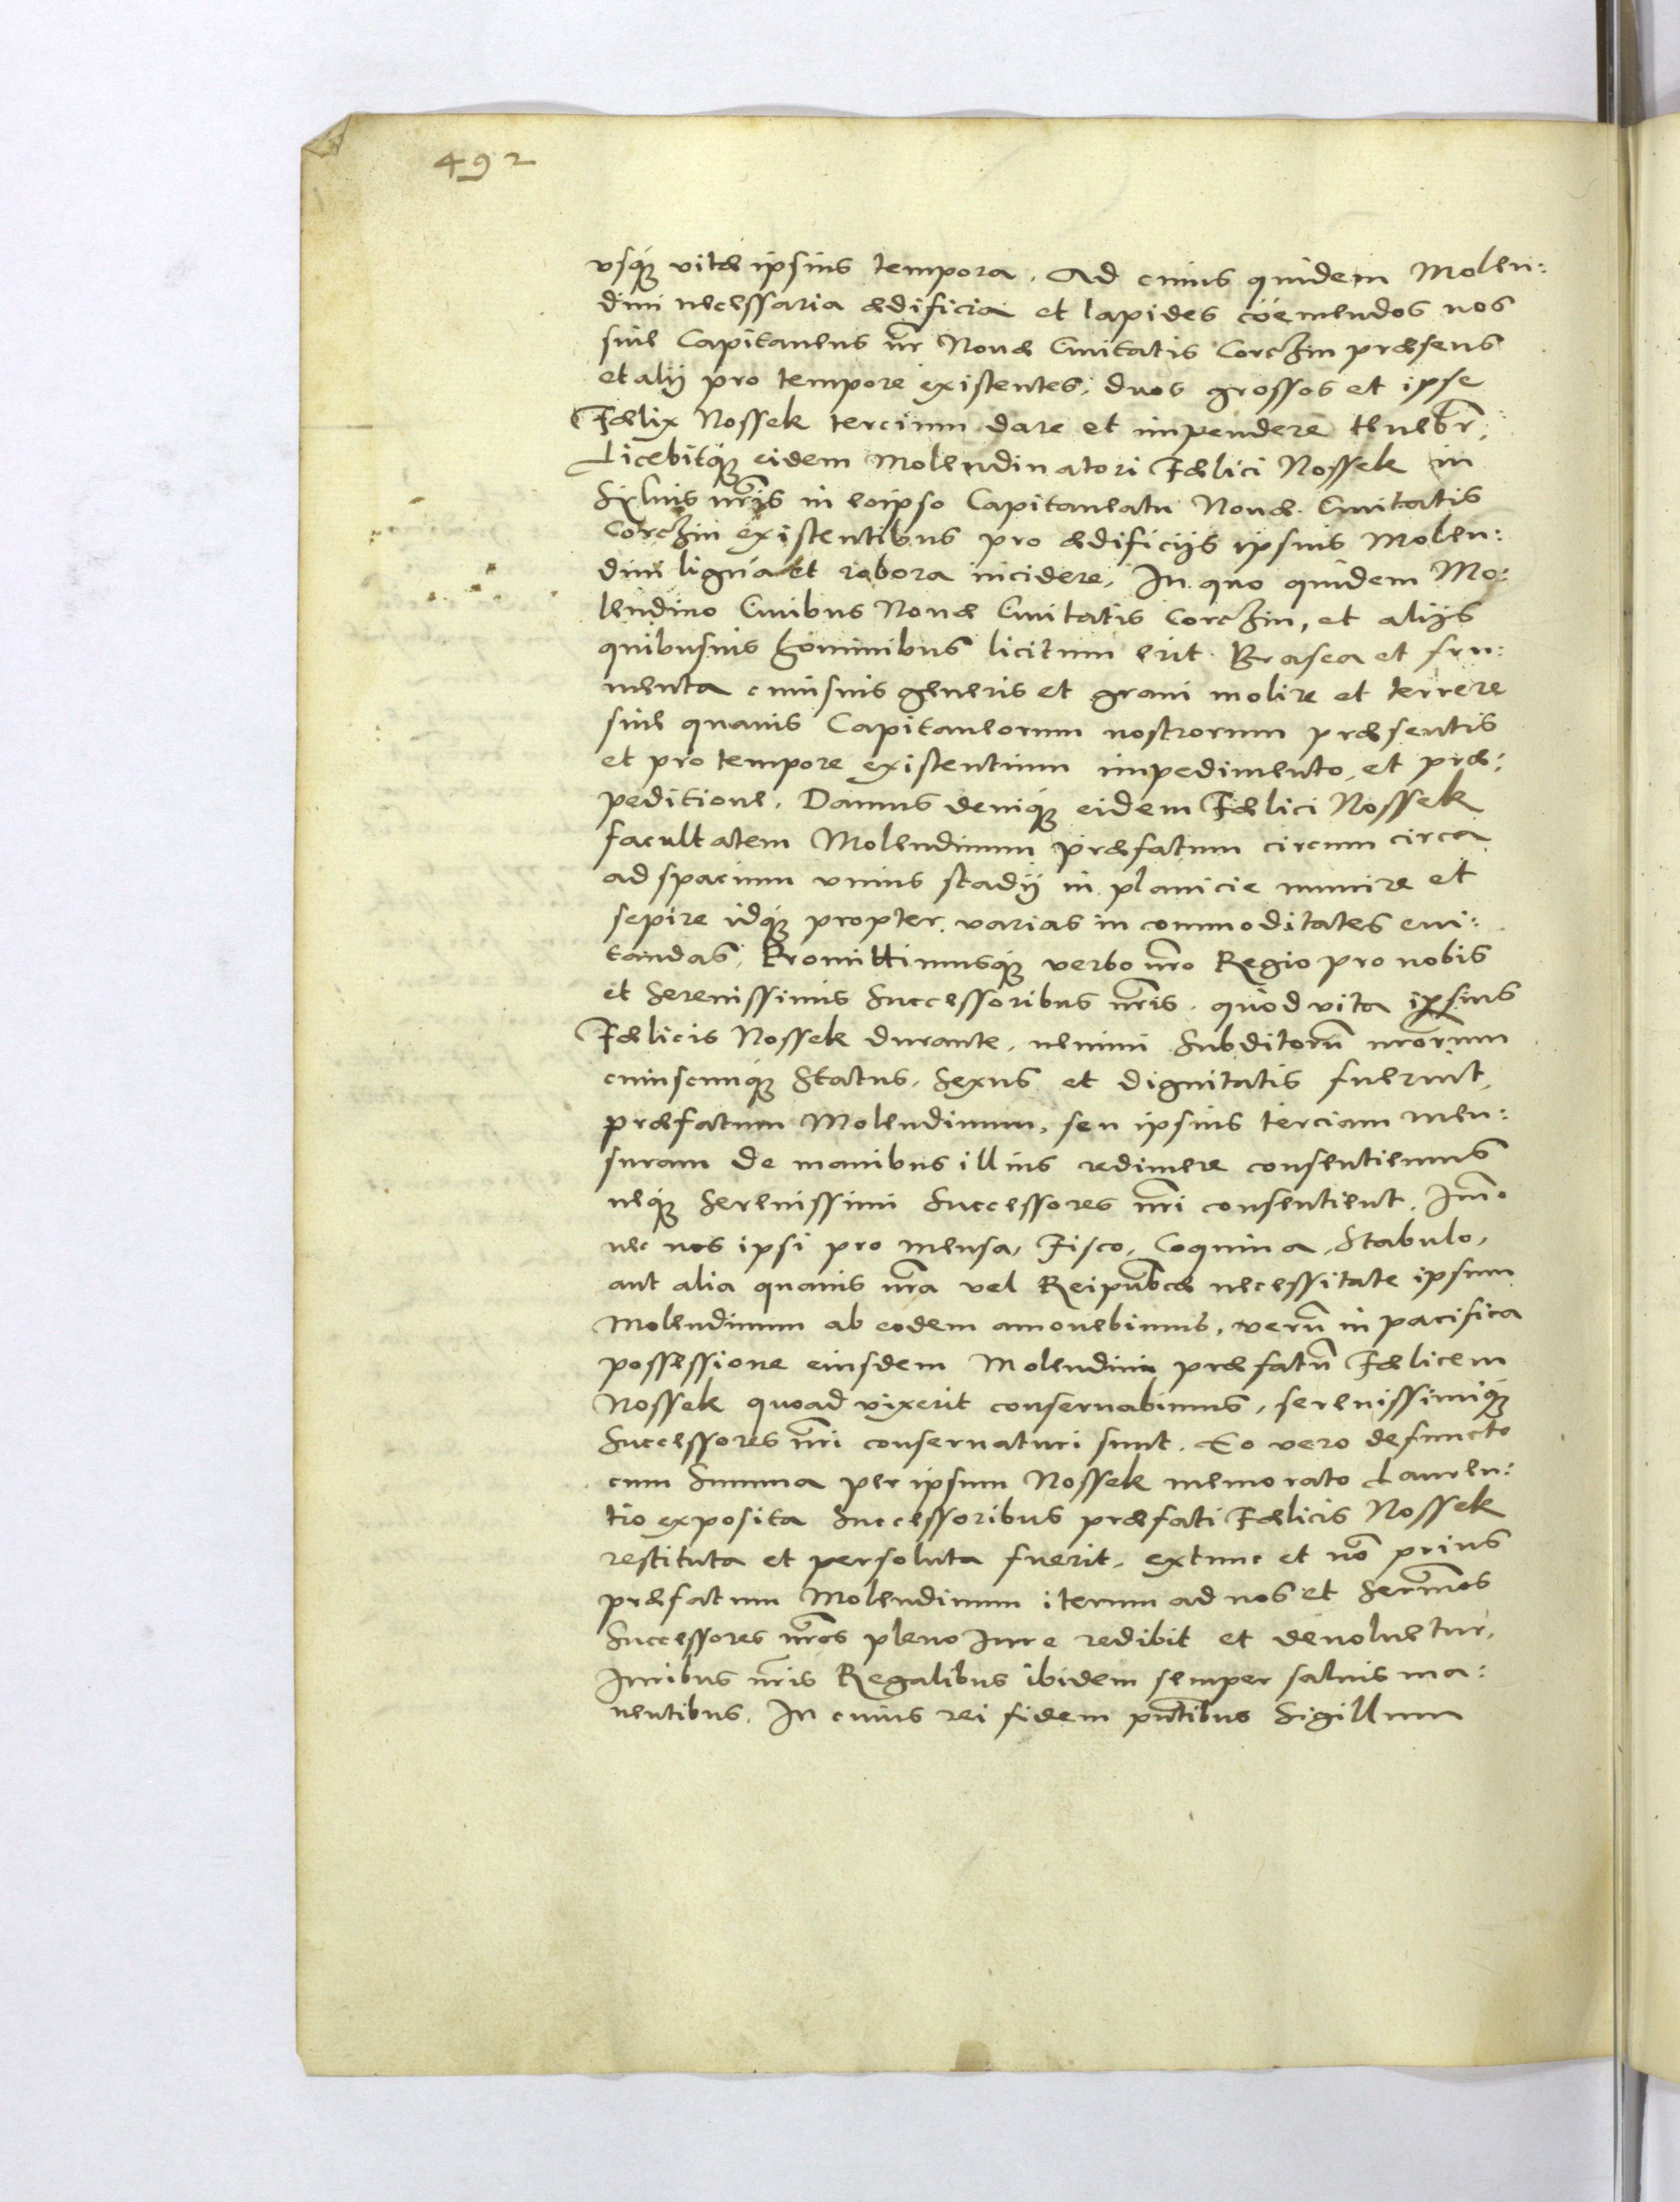 492
vsq́ꝫ vitæ ipsius tempora. Ad cuius quidem Molen:
dini necessaria ædificia et lapides cöemendos nos
siue Capitaneus nr̃ Nouæ Ciuitatis Corczin præsens
et alij pro tempore existentes, duos grossos et ipse
Fælix Nossek tercium dare et impendere tenebr̃,
Licebitq́ꝫ eidem Molendinatori Fælici Nossek in
Syluis nr̃is in eoipso Capitaneatu Nouæ Ciuitatis
Corczin existentibus pro ædificijs ipsius Molen:
dini ligna et robora incidere, In quo quidem Mo:
lendino Ciuibus Nouæ Ciuitatis Corczin, et alijs
quibusuis hominibus licitum erit Brasea et fru:
menta cuiusuis generis et grani molire et terrere
siue quauis Capitaneorum nostrorum præsentis
et pro tempore existentium impedimento, et præ:
peditione. Damus deniq́ꝫ eidem Fælici Nossek
facultatem Molendinum præfatum circum circa
ad spacium vnius stadij in planicie munire et
sepire idq́ꝫ propter varias incommoditates eui:
tandas, Promittimusq́ꝫ verbo nr̃o Regio pro nobis
et Serenissimis Successoribus nr̃is. quòd vita ipsius
Fælicis Nossek durante, nemini Subditorũ nr̃orum
cuiuscunq́ꝫ Status, Sexus et dignitatis fuerint,
præfatum Molendinum, seu ipsius terciam men:
suram de manibus illius redimere consentiemus
neq́ꝫ Serenissimi Successores nr̃i consentient. Im̃o
nec nos ipsi pro mensa, Fisco, Coquina, Stabulo,
aut alia quauis nr̃a vel Reipub̃cæ necessitate ipsum
Molendinum ab eodem amouebimus, verũ in pacifica
possessione eiusdem Molendini præfatũ Fælicem
Nossek quoad vixerit conseruabimus, serenissimiq́ꝫ
Successores nr̃i conseruaturi sunt. Eo vero defuncto
cum Summa per ipsum Nossek memorato Lauren:
tio exposita Successoribus præfati Fælicis Nossek
restituta et persoluta fuerit, extunc et nõ prius
præfatum Molendinum iterum ad nos et Serm̃os
Successores nr̃os pleno Iure redibit et deuoluetur,
Iuribus nr̃is Regalibus ibidem semper saluis ma:
nentibus. In cuius rei fidem pñtibus Sigillum